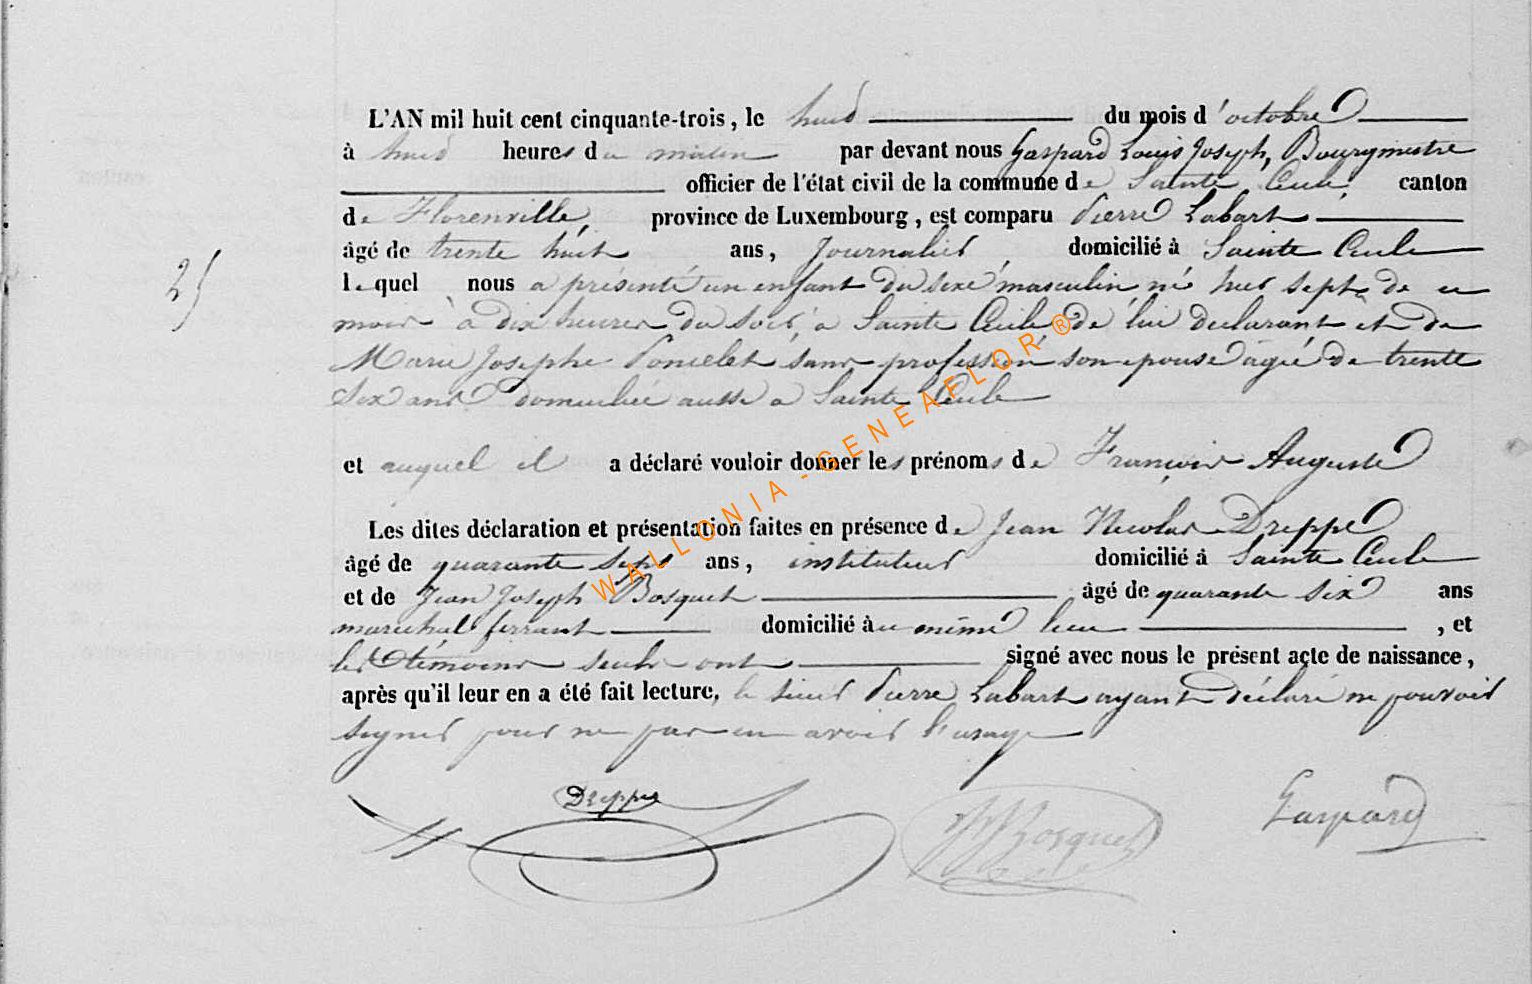 L'AN mil huit cent cinquante-trois, le huit du mois d'octobre
à huit heures du matin par devant nous Gaspard Louis Joseph, Bourgmestre
officier de l'état civil de la commune de Sainte Cecile, canton
de Florenville province de Luxembourg, est comparu Pierre Labart
âgé de trente huit ans, Journalier domicilié à Sainte Cecile
25
lequel nous a présenté un enfant du sexe masculin né hier sept de ce
mois à dix heures du soir, a Sainte Cecile, de lui declarant et de
Marie Josephe Poncelet sans profession son epouse agée de trente
six ans domiciliée aussi a Sainte Cecile
et auquel il a déclaré vouloir donner les prénoms de François Auguste
Les dites déclaration et présentation faites en présence de Jean Nicolas Dreppe
âgé de quarante sept ans, instituteur domicilié à Sainte Cecile
et de Jean Joseph Bosquet âgé de quarante six ans
marechal ferrant domicilié au même lieu, et
les témoins seuls ont signé avec nous le présent acte de naissance,
après qu'il leur en a été fait lecture, le sieur Pierre Labart ayant déclaré ne pouvoir
signer pour ne pas en avoir l'usage
Dreppe JJBosquet Gaspard
WALLONIA-GENEAFLOR®